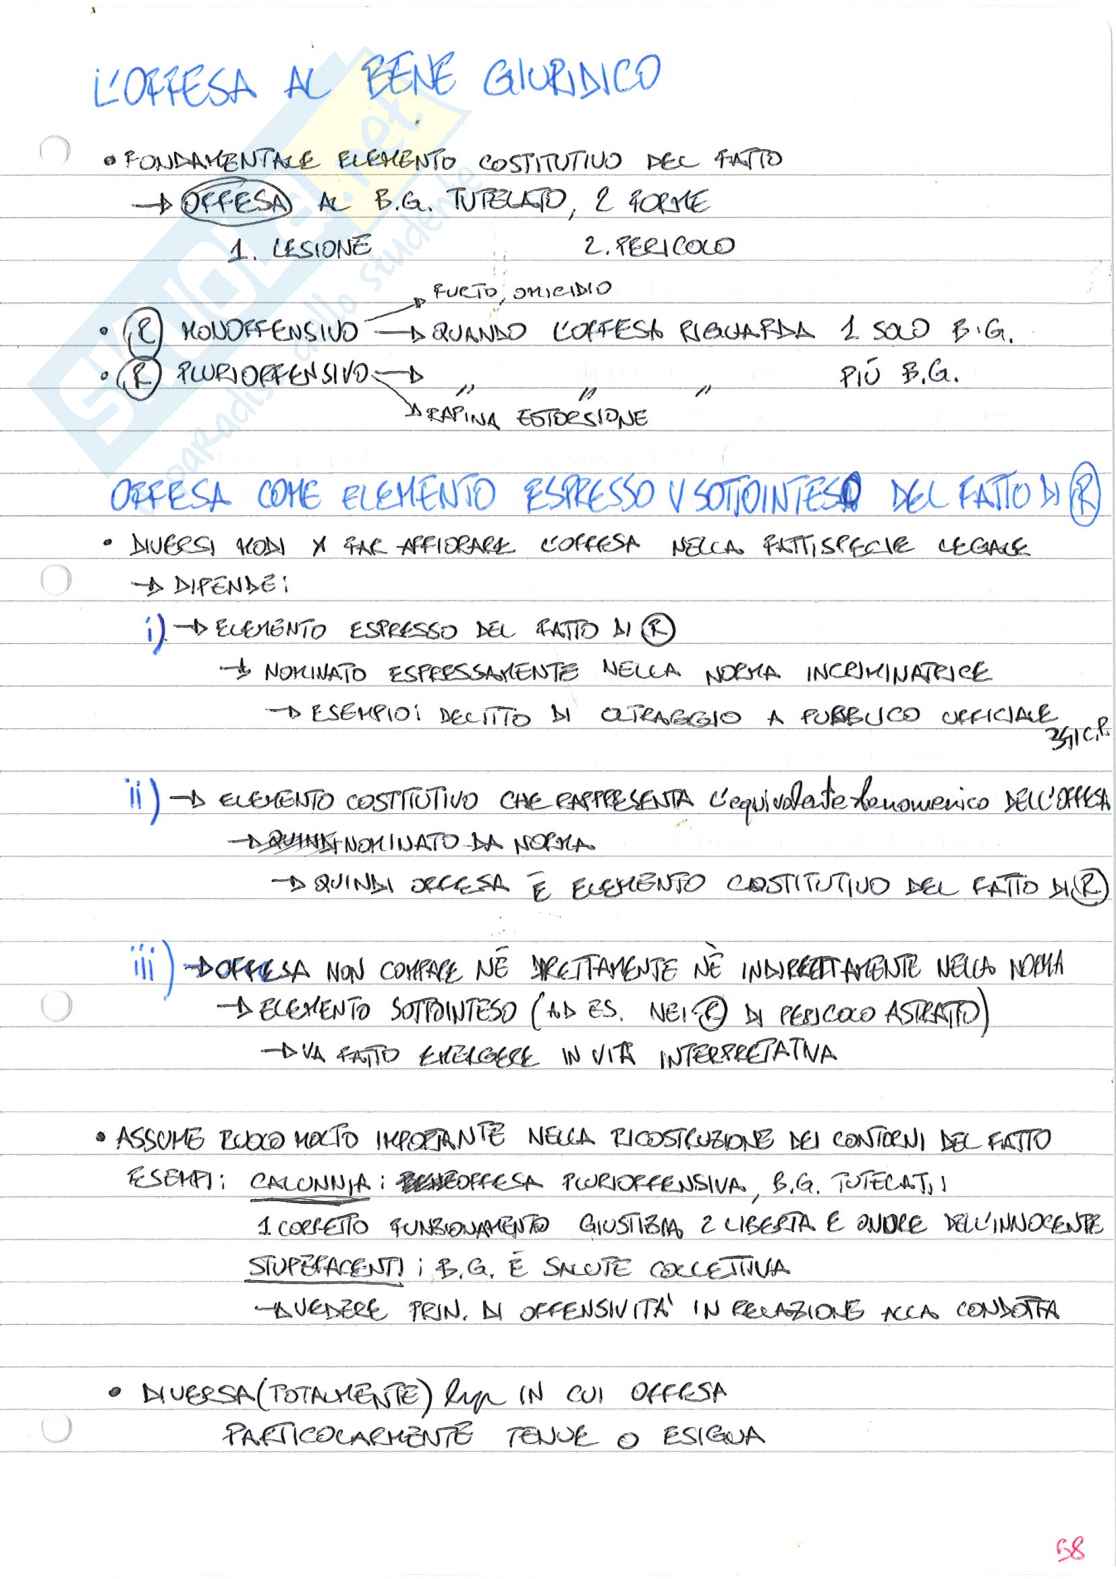 L'OFFESA AL BENE GIURIDICO
• FONDAMENTALE ELEMENTO COSTITUTIVO DEL FATTO
→ OFFESA AL B.G. TUTELATO, 2 FORME
1. LESIONE 2. PERICOLO
→ FURTO, OMICIDIO
• R MONOFFENSIVO → QUANDO L'OFFESA RIGUARDA 1 SOLO B.G.
• R PLURIOFFENSIVO → " " " PIÙ B.G.
→ RAPINA ESTORSIONE
OFFESA COME ELEMENTO ESPRESSO V SOTTOINTESO DEL FATTO DI R
• DIVERSI MODI X FAR AFFIORARE L'OFFESA NELLA FATTISPECIE LEGALE
→ DIPENDE:
i) → ELEMENTO ESPRESSO DEL FATTO DI R
→ NOMINATO ESPRESSAMENTE NELLA NORMA INCRIMINATRICE
→ ESEMPIO: DELITTO DI OLTRAGGIO A PUBBLICO UFFICIALE
341 C.P.
ii) → ELEMENTO COSTITUTIVO CHE RAPPRESENTA L'equivalente fenomenico DELL'OFFESA
→ NOMINATO DA NORMA
→ QUINDI OFFESA È ELEMENTO COSTITUTIVO DEL FATTO DI R
iii) → OFFESA NON COMPARE NÈ DIRETTAMENTE NÈ INDIRETTAMENTE NELLA NORMA
→ ELEMENTO SOTTOINTESO (AD ES. NEI R DI PERICOLO ASTRATTO)
→ VA FATTO EMERGERE IN VIA INTERPRETATIVA
• ASSUME RUOLO MOLTO IMPORTANTE NELLA RICOSTRUZIONE DEI CONTORNI DEL FATTO
ESEMPI: CALUNNIA: OFFESA PLURIOFFENSIVA, B.G. TUTELATI:
1 CORRETTO FUNZIONAMENTO GIUSTIZIA, 2 LIBERTA E ONORE DELL'INNOCENTE
STUPEFACENTI: B.G. È SALUTE COLLETTIVA
→ VEDERE PRIN. DI OFFENSIVITA' IN RELAZIONE ALLA CONDOTTA
• DIVERSA (TOTALMENTE) IN CUI OFFESA
PARTICOLARMENTE TENUE O ESIGUA
58